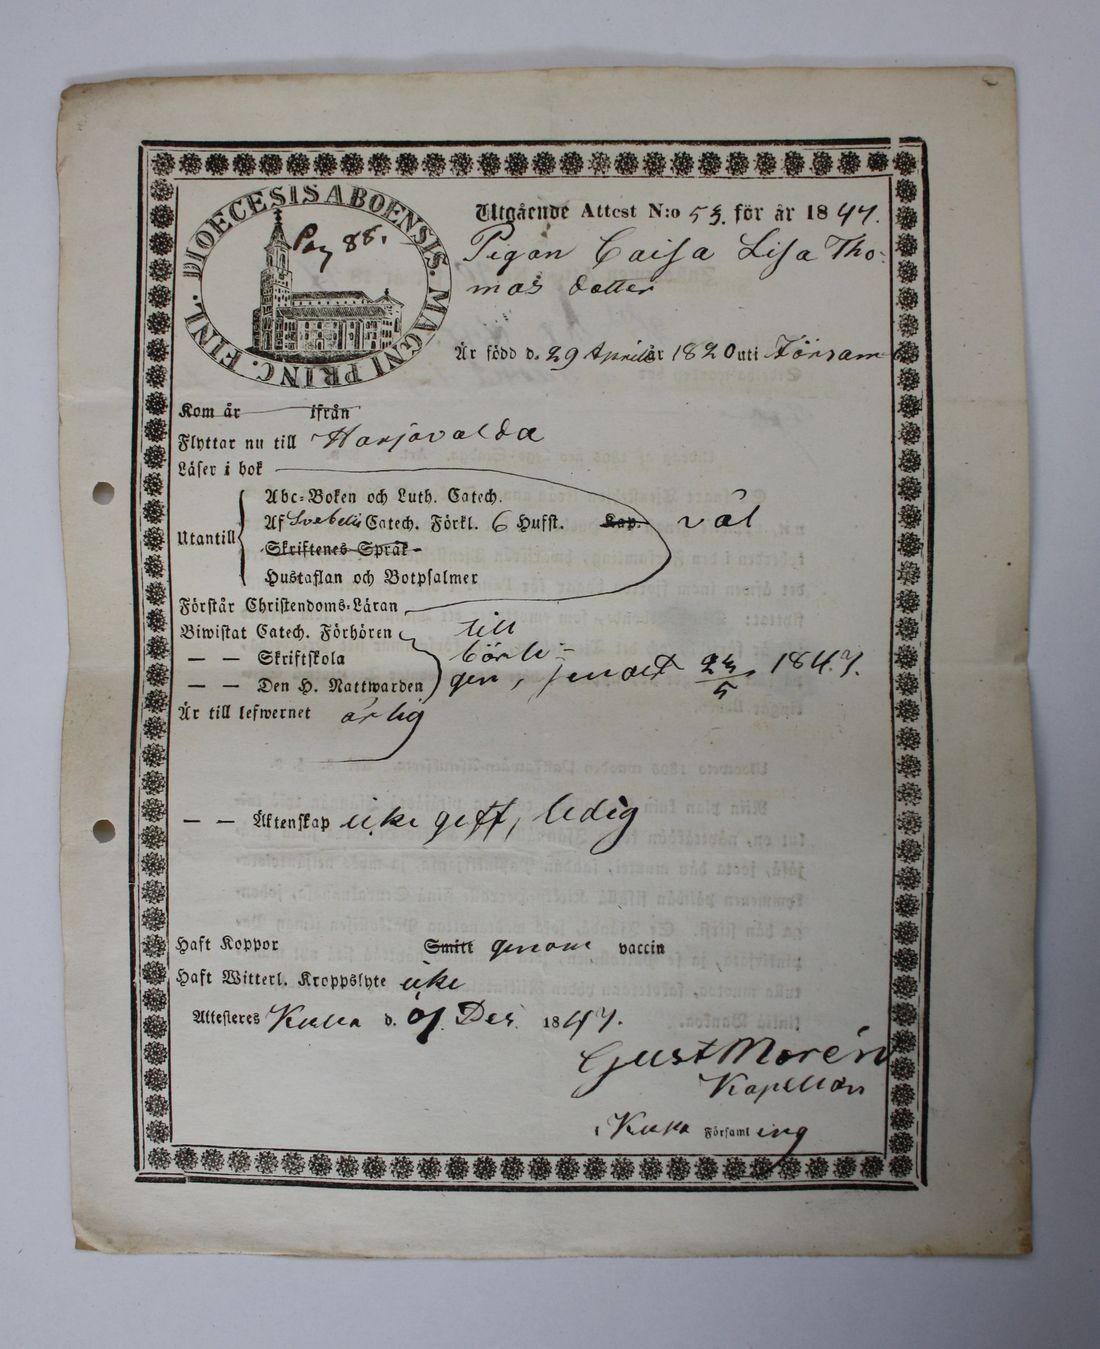 DIOECESIS ABOENSIS. MAGNI PRINC. FINL.
Pag 88.
Utgående Attest N:o 53. för år 1847.
Pigan Caisa Lisa Tho-
mas dotter
Är född d. 29 Aprilis år 1820 uti Församl
Kom år ifrån
Flyttar nu till Harjavalda
Läser i bok
Abc-Boken och Luth. Catech.
Utantill Af Svebelii Catech. Förkl. 6 Hufst. Kap. väl
Skriftenes Språk
Hustaflan och Botpsalmer
Förstår Christendoms-Läran
Biwistat Catech. Förhören till
— — Skriftskola börli-
— — Den H. Nattwarden gen, senast 23/5 1847.
Är till lefwernet ärlig
— — Äktenskap icke gift, ledig
Haft Koppor Smitt genom vaccin
Haft Witterl. Kroppslyte icke
Attesteres d. Dec. 1847.
Gust Morén
Kapellan
i Församling